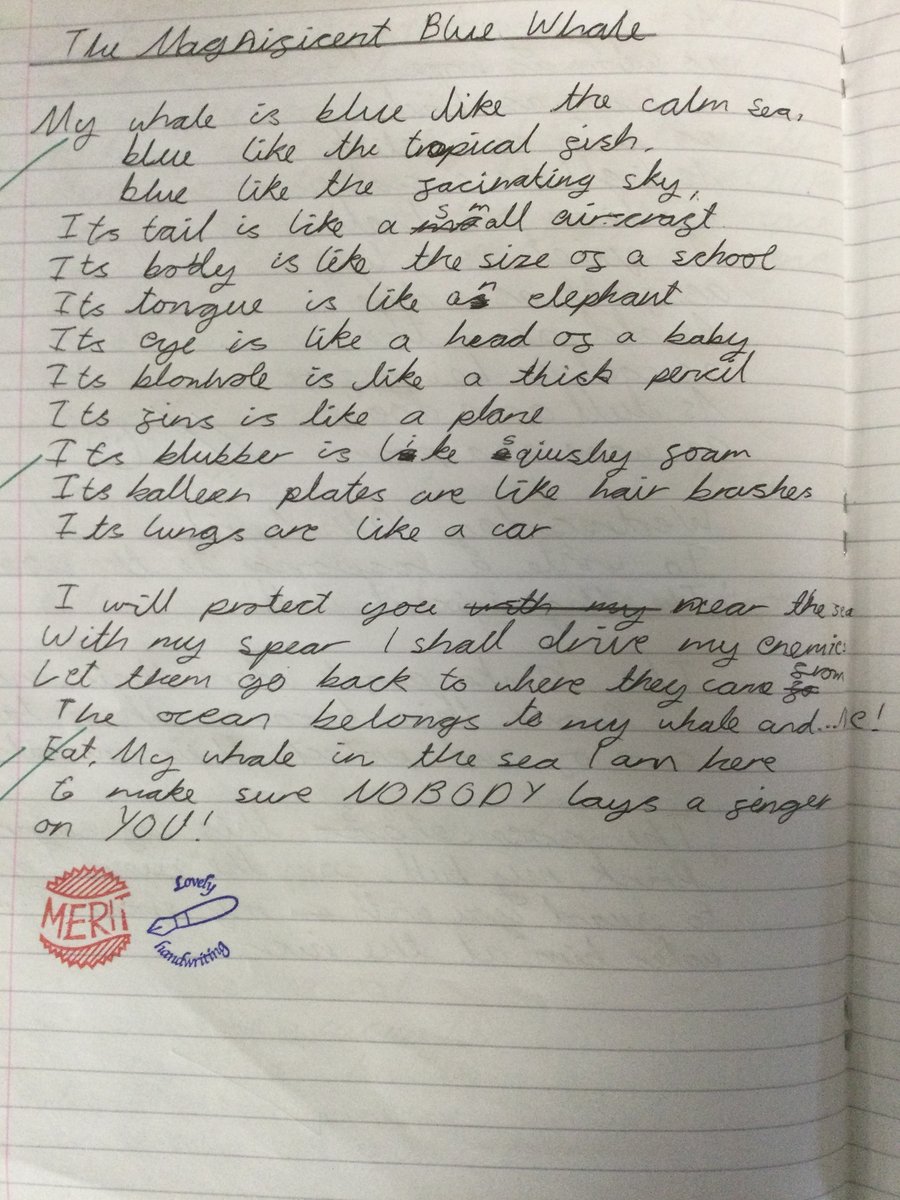 The Magnificent Blue Whale
My whale is blue like the calm sea,
blue like the tropical fish,
blue like the facinating sky,
Its tail is like a small air-craft
Its body is like the size of a school
Its tongue is like an elephant
Its eye is like a head of a baby
Its blowhole is like a thick pencil
Its fins is like a plane
Its blubber is like sqiushy foam
Its balleen plates are like hair brushes
Its lungs are like a car
I will protect you with my near the sea
With my spear I shall drive my enemies
Let them go back to where they came from
The ocean belongs to my whale and...Me!
Eat, My whale in the sea I am here
to make sure NOBODY lays a finger
on YOU!
MERIT
Lovely
handwriting